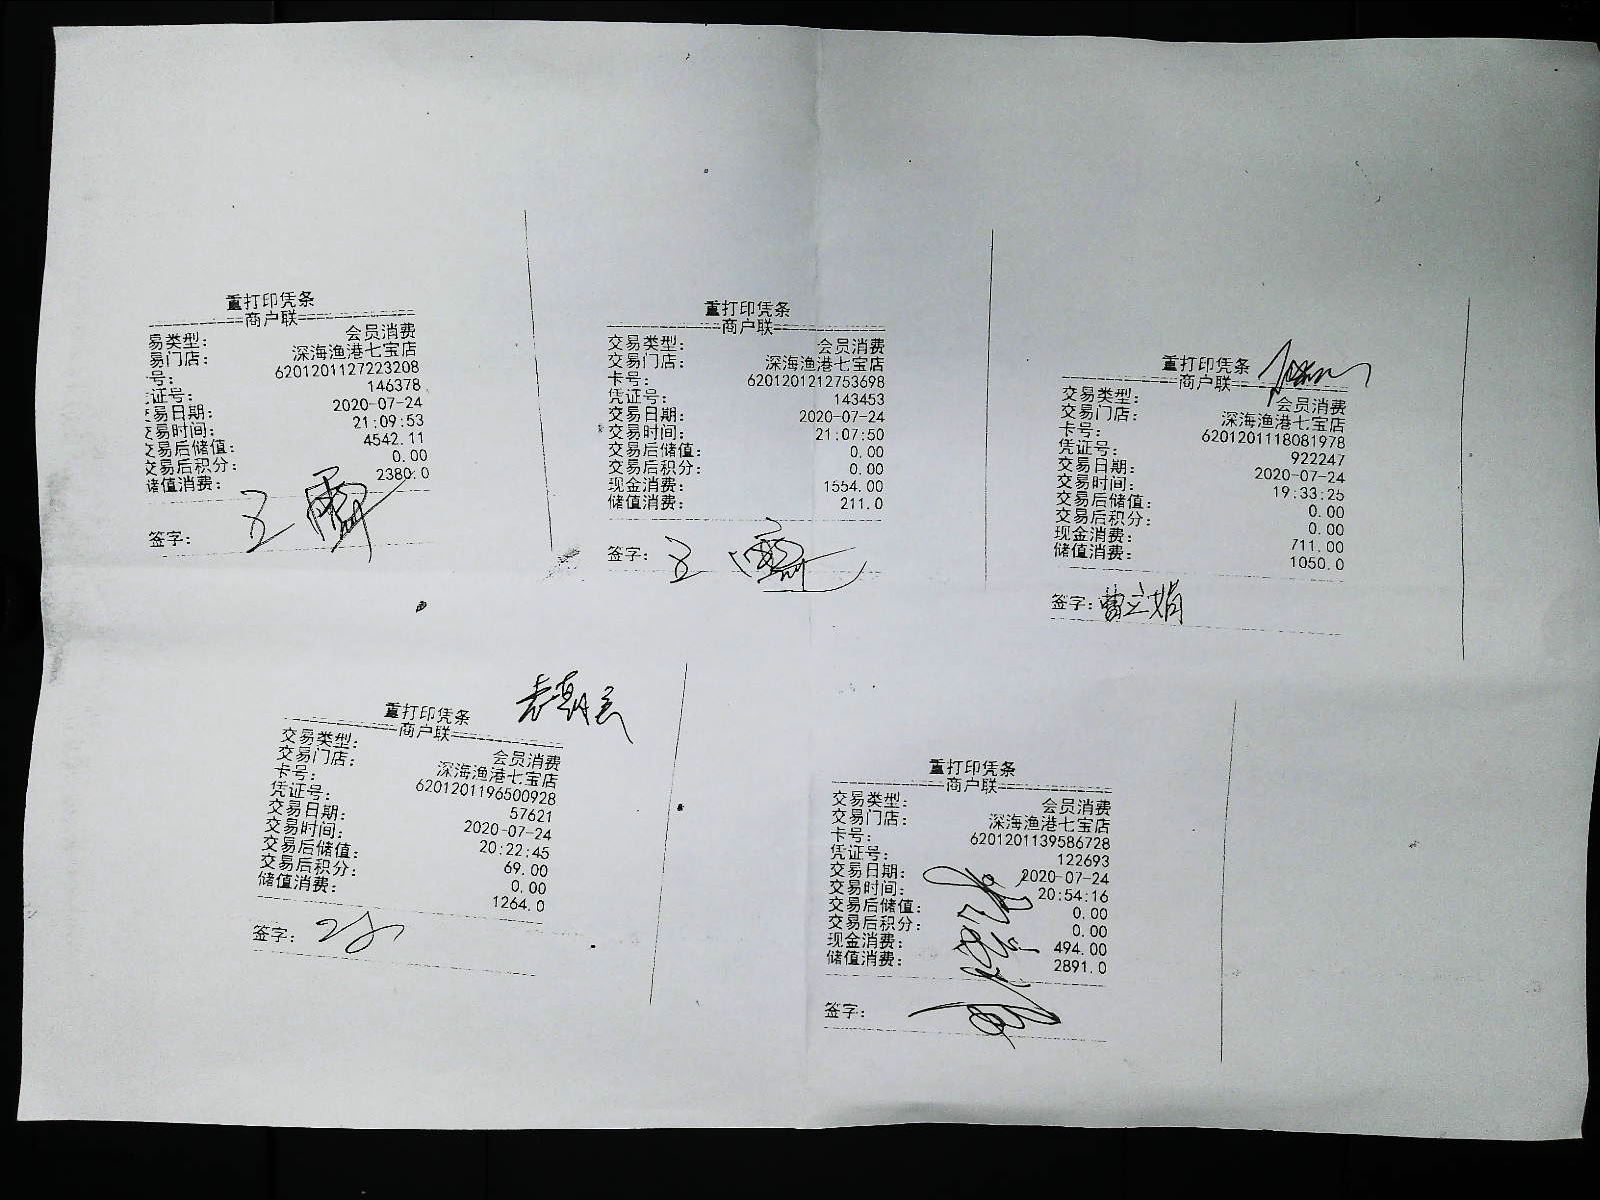 重打印凭条
商户联
易类型: 会员消费
易门店: 深海渔港七宝店
号: 6201201127223208
证号: 146378
交易日期: 2020-07-24
交易时间: 21:09:53
交易后储值: 4542.11
交易后积分: 0.00
储值消费: 2380.0
签字:
重打印凭条
商户联
交易类型: 会员消费
交易门店: 深海渔港七宝店
卡号: 6201201212753698
凭证号: 143453
交易日期: 2020-07-24
交易时间: 21:07:50
交易后储值: 0.00
交易后积分: 0.00
现金消费: 1554.00
储值消费: 211.0
签字:
重打印凭条
商户联
交易类型: 会员消费
交易门店: 深海渔港七宝店
卡号: 6201201118081978
凭证号: 922247
交易日期: 2020-07-24
交易时间: 19:33:25
交易后储值: 0.00
交易后积分: 0.00
现金消费: 711.00
储值消费: 1050.0
签字: 曹立娟
重打印凭条
商户联
交易类型: 会员消费
交易门店: 深海渔港七宝店
卡号: 6201201196500928
凭证号: 57621
交易日期: 2020-07-24
交易时间: 20:22:45
交易后储值: 69.00
交易后积分: 0.00
储值消费: 1264.0
签字:
重打印凭条
商户联
交易类型: 会员消费
交易门店: 深海渔港七宝店
卡号: 6201201139586728
凭证号: 122693
交易日期: 2020-07-24
交易时间: 20:54:16
交易后储值: 0.00
交易后积分: 0.00
现金消费: 494.00
储值消费: 2891.0
签字: